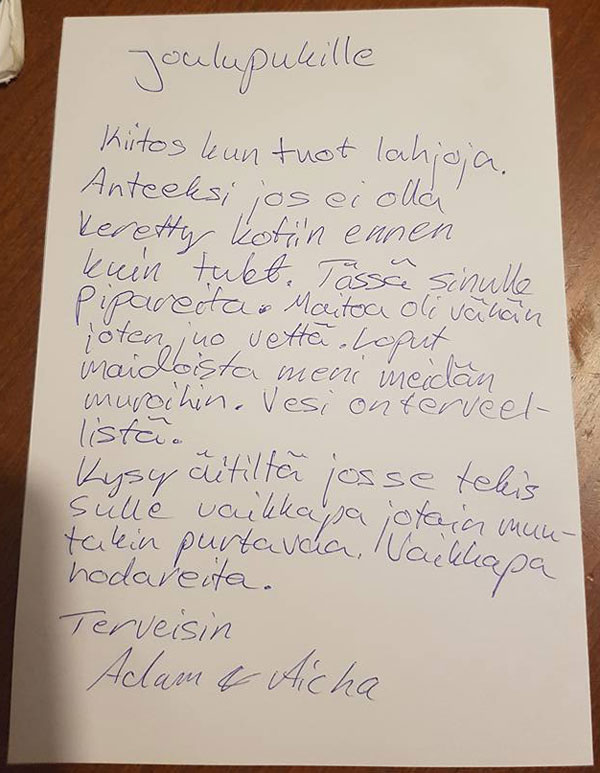 Joulupukille
Kiitos kun tuot lahjoja.
Anteeksi jos ei olla
keretty kotiin ennen
kuin tulet. Tässä sinulle
Pipareita. Maitoa oli vähän
joten juo vettä. Loput
maidoista meni meidän
muroihin. Vesi on terveel-
listä.
Kysy äitiltä jos se tekis
sulle vaikkapa jotain muu-
takin purtavaa. Vaikkapa
hodareita.
Terveisin
Adam & Aicha